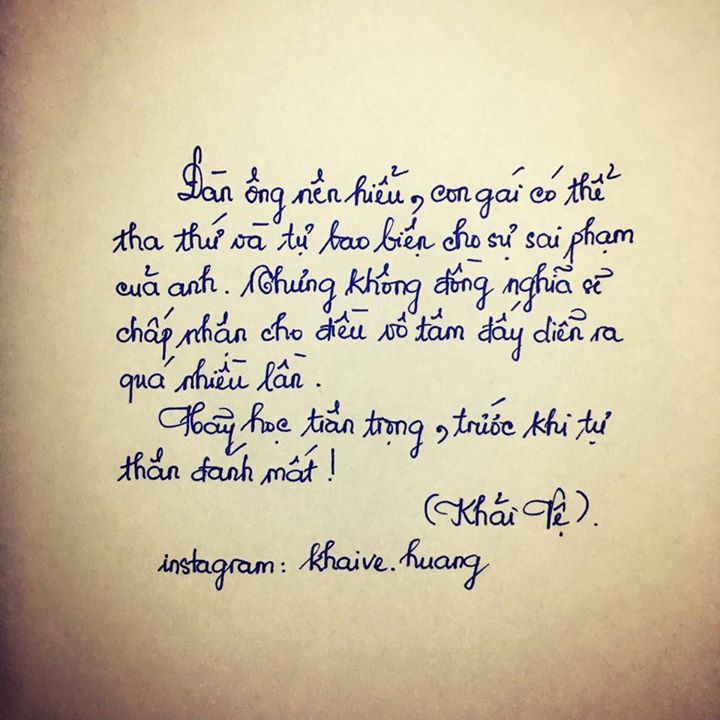 Đàn ông nên hiểu, con gái có thể
tha thứ và tự bao biện cho sự sai phạm
của anh. Nhưng không đồng nghĩa sẽ
chấp nhận cho điều vô tâm đấy diễn ra
quá nhiều lần.
Hãy học trân trọng, trước khi tự
thân đánh mất!
(Khải Vệ).
instagram: khaive.huang